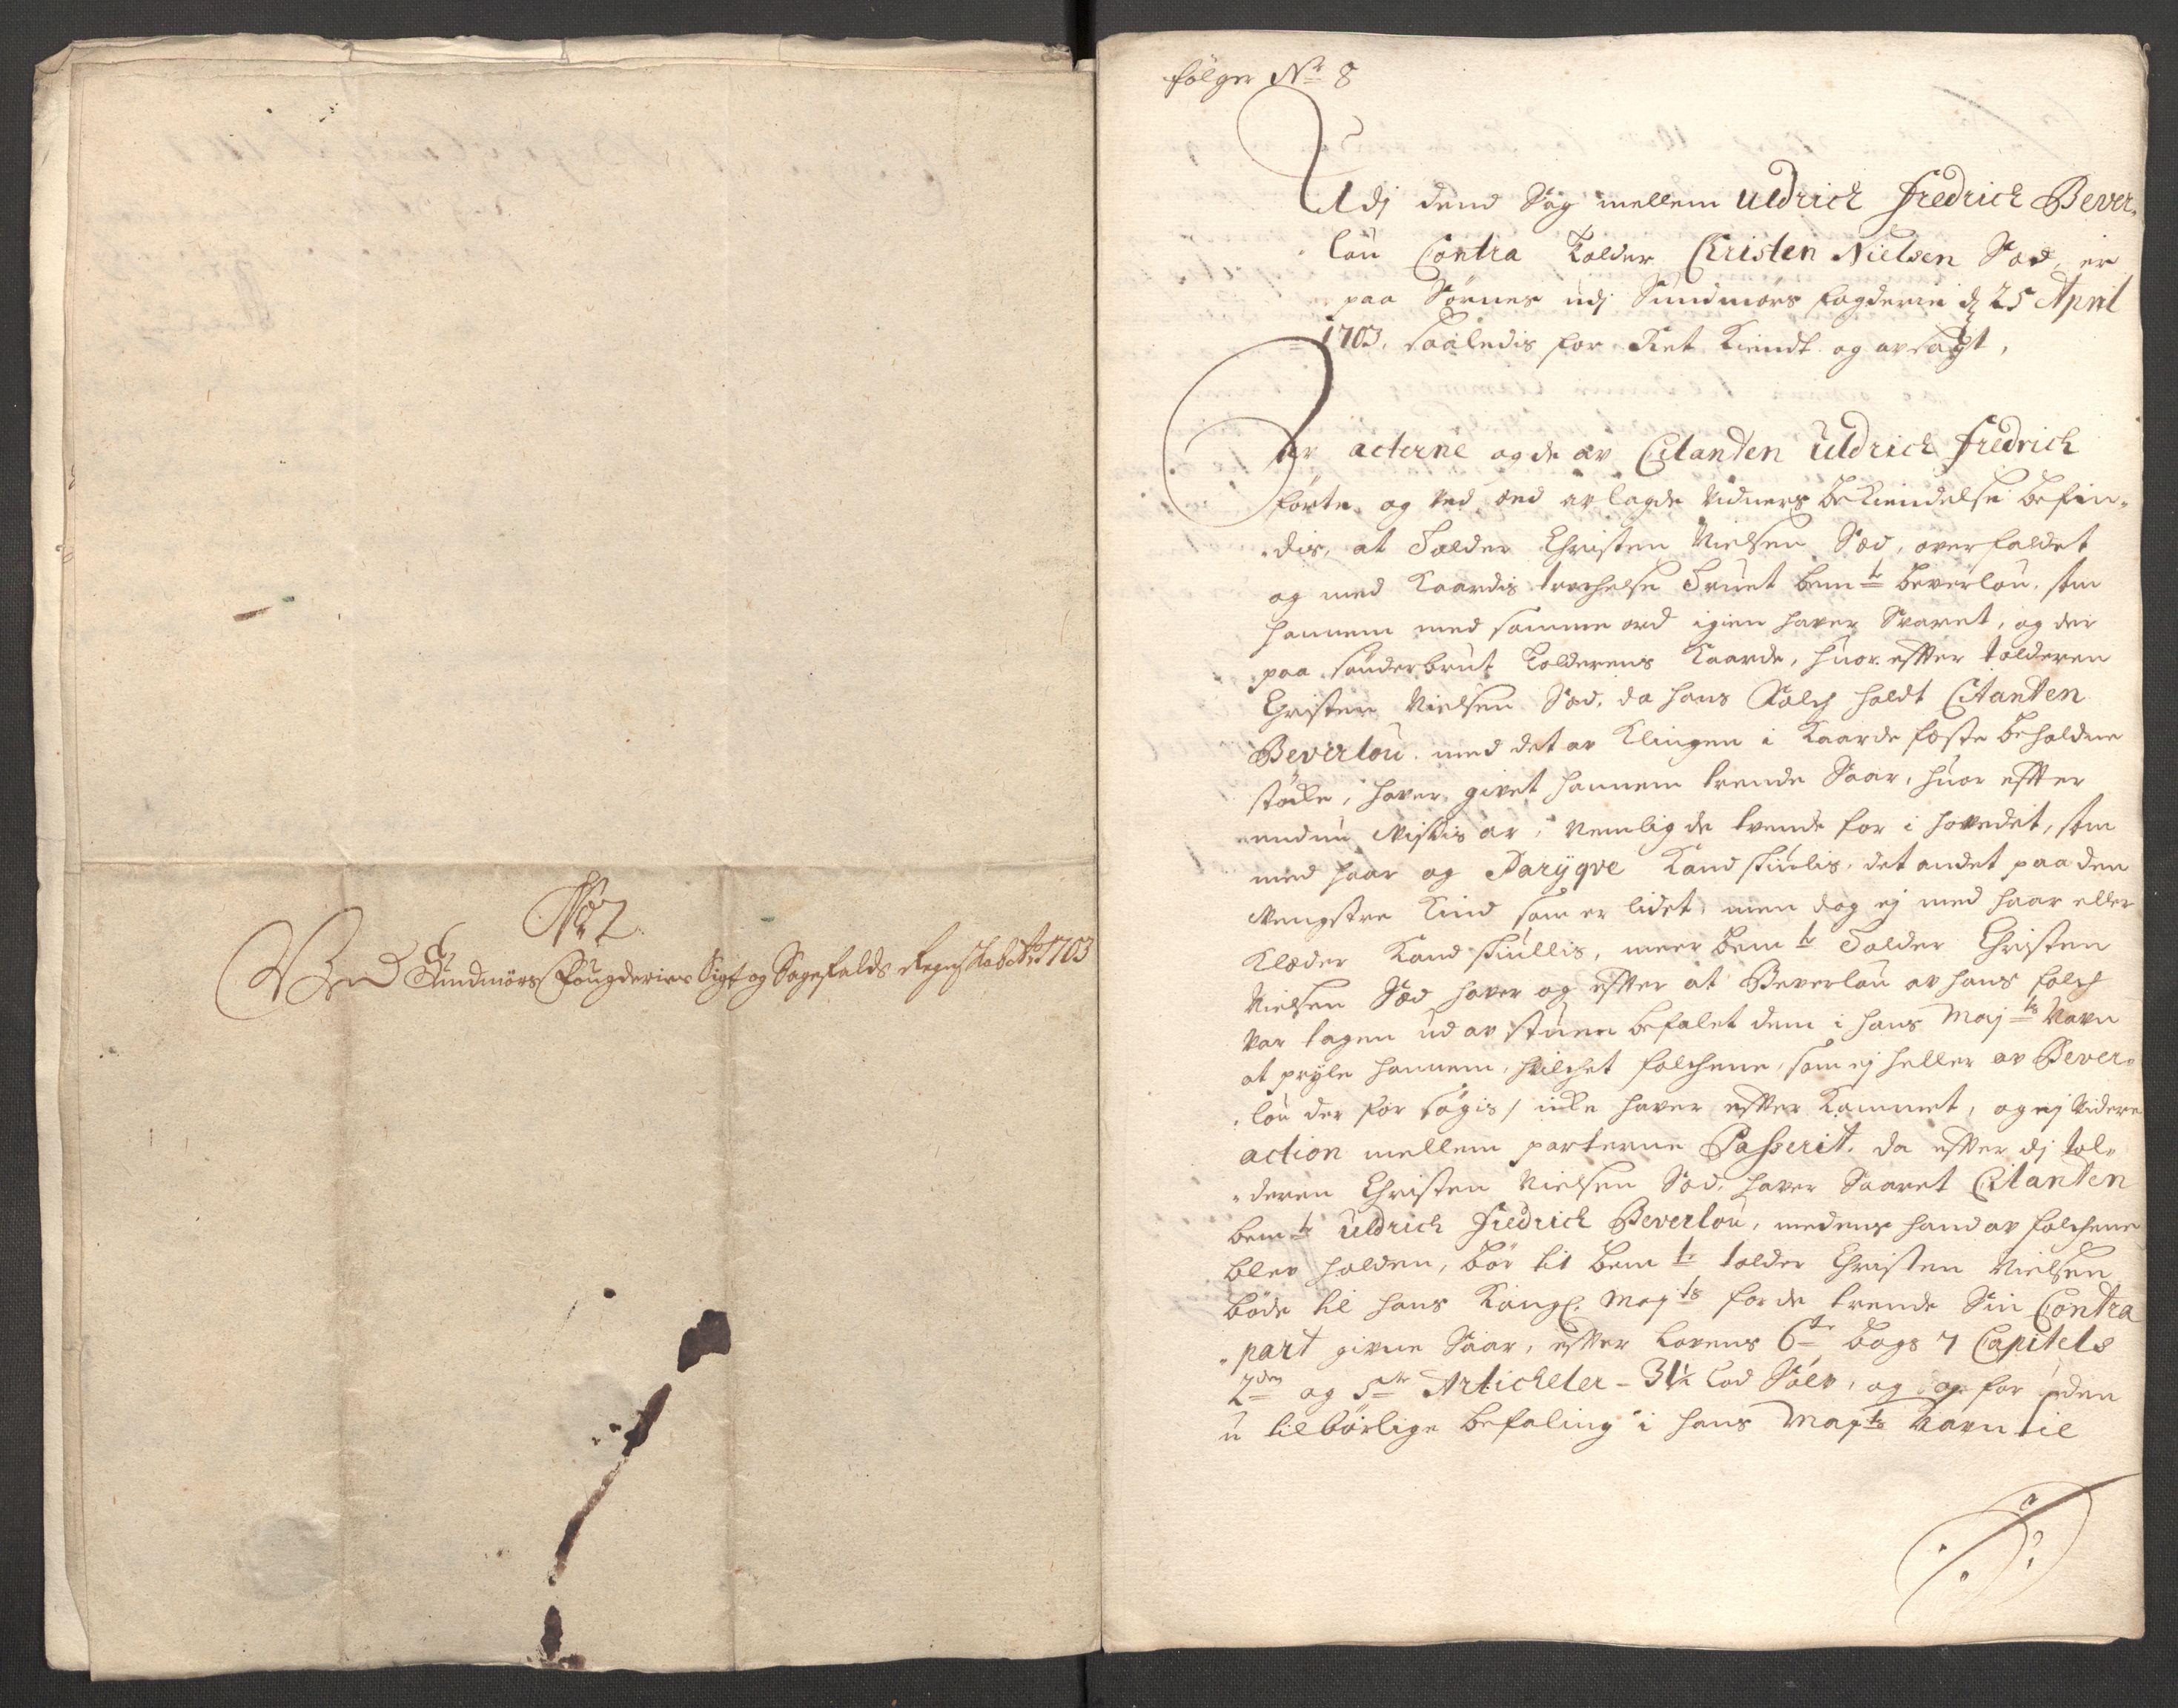 No 7
Ved Sundmörs Fougderies Sigt og Sagefalds Regnskab Ao 1703
Følger No 8
Udj dend Sag mellem Uldrich Fredrich Bever-
lou Contra Tolder Christen Nielsen Sod, er
paa Sörnes udj Sundmörs fogderie d 25 April
1703, saaledis for Ret Kiendt og avsagt,
Av acterne og de av Citanten Uldrich Fredrich
förte og ved eed avlagde vidners bekiendelse befin-
dis, at Tolder Christen Nielsen Sod, overfaldet
og med Kaardis trechelse Truet bemte Beverlou, som
hannem med samme ord igien haver Svaret, og der
paa sönderbrut Tolderens Kaarde, huor effter tolderen
Christen Nielsen Sod, da hans Folch holdt Citanten
Beverlou med det av Klingen i Kaarde feste beholdne
stöke, haver givet hannem trende Saar, huor effter
endnu Vistis ar, nemlig de tvende for i hovedet, som
med haar og Paryqve Kand skiulis, det andet paa den
Vengstre Kind som er lidet, men dog ej med haar eller
Klæder Kand skiullis, meer bemte Tolder Christen
Nielsen Sod haver og effter at Beverlou av hans folch
var tagen ud av stuen befalet dem i hans Majts Navn
at pryle hannem, hvilchet folchene, som ej heller av Bever-
lou der for søgis, icke haver effter Kommet, og ej videre
action mellem parterne Passerit. da effter dj tol-
deren Christen Nielsen Sod, haver Saaret Citanten
bemte Uldrich Fredrich Beverlou, medens hand av folchene
blev holden, bör tit bemte tolder Christen Nielsen
böde til hans Kongl. Majts for de trende Sin Contra
part givne Saar, effter Lovens 6te Bogs 7 Capitels
2den og 5te Articheler - 31½ Lod Sölv, og for den
u tilbörlige befaling i hans Majts Navn til